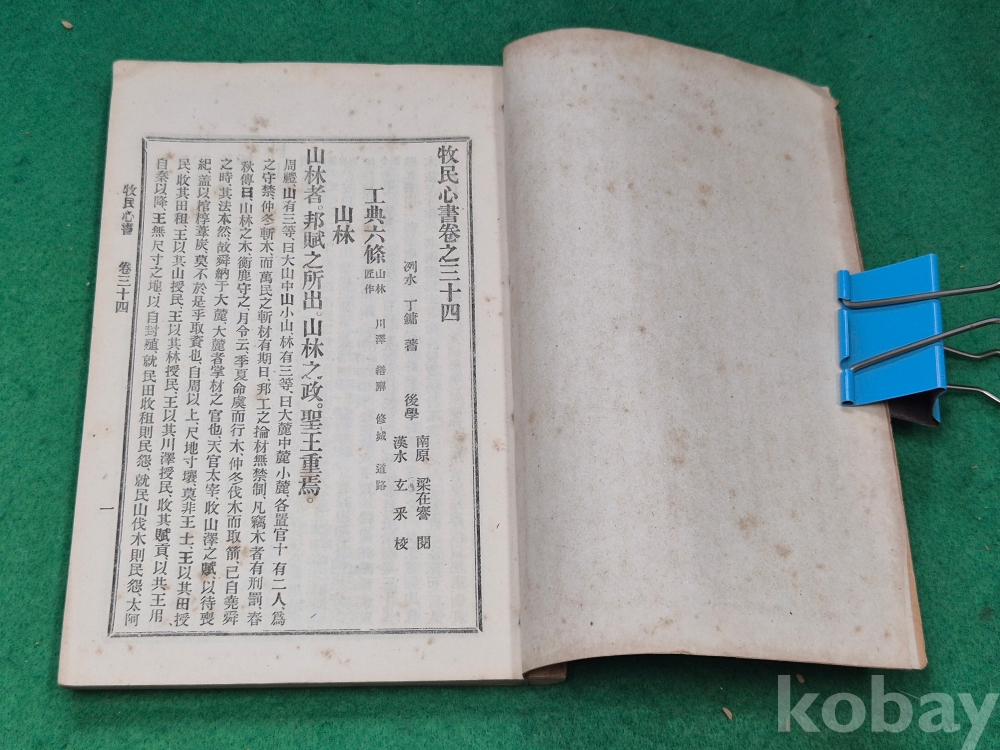 牧民心書卷之三十四
洌水 丁鏞 著 後學 南原 梁在謇 閱
漢水 玄采 校
工典六條 山林 川澤 繕廨 修城 道路
匠作
山林
山林者。邦賦之所出。山林之政。聖王重焉。
周禮、山有三等、曰大山中山小山、林有三等、曰大麓中麓小麓、各置官十有二人、爲
之守禁、仲冬斬木、而萬民之斬材有期日、邦工之掄材無禁制、凡竊木者有刑罰、春
秋傳曰、山林之木、衡鹿守之、月令云、季夏命虞而行木、仲冬伐木而取箭、已自堯舜
之時、其法本然、故舜納于大麓、大麓者掌材之官也、天官太宰、收山澤之賦、以待喪
紀、盖以棺椁葦炭、莫不於是乎取資也、自周以上、尺地寸壤、莫非王土、王以其田授
民、收其田租、王以其山授民、王以其林授民、王以其川澤授民、收其賦貢、以共王用、
自秦以降、王無尺寸之地、以自封殖、就民田收租則民怨、就民山伐木則民怨、太阿
牧民心書 卷三十四
一
kobay